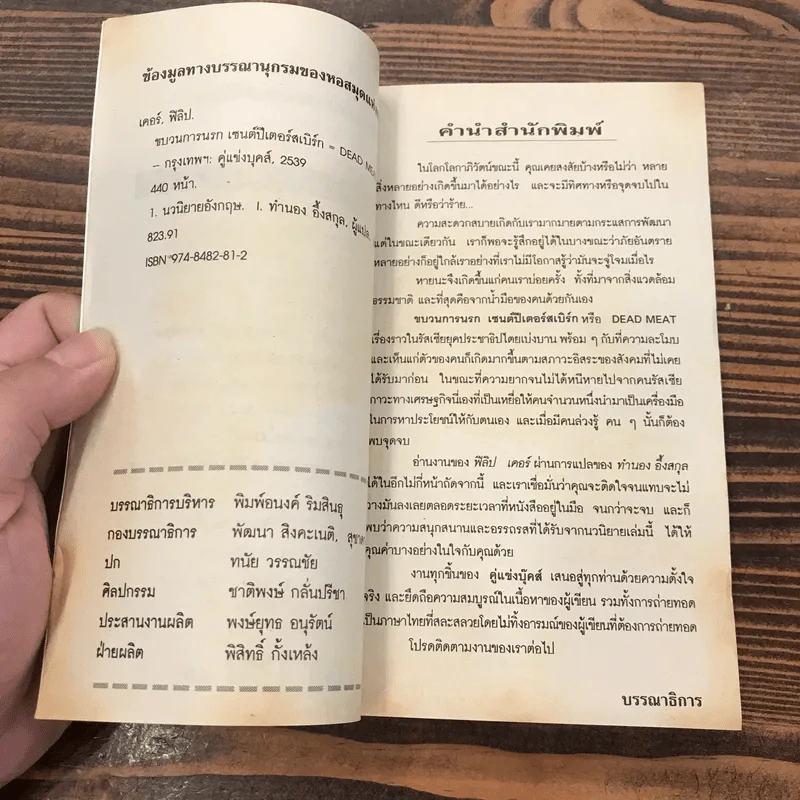 ข้อมูลทางบรรณานุกรมของหอสมุดแห่ง
เคอร์, ฟิลิป.
ขบวนการนรก เซนต์ปีเตอร์สเบิร์ก = DEAD MEAT
– กรุงเทพฯ: คู่แข่งบุคส์, 2539
440 หน้า.
1. นวนิยายอังกฤษ. I. ทำนอง อึ้งสกุล, ผู้แปล
823.91
ISBN 974-8482-81-2
บรรณาธิการบริหาร พิมพ์อนงค์ ริมสินธุ
กองบรรณาธิการ พัฒนา สิงคะเนติ,
ปก ทนัย วรรณชัย
ศิลปกรรม ชาติพงษ์ กลั่นปรีชา
ประสานงานผลิต พงษ์ยุทธ อนุรัตน์
ฝ่ายผลิต พิสิทธิ์ กั้งเหล้ง
คำนำสำนักพิมพ์
ในโลกโลกาภิวัตน์ขณะนี้ คุณเคยสงสัยบ้างหรือไม่ว่า หลาย
สิ่งหลายอย่างเกิดขึ้นมาได้อย่างไร และจะมีทิศทางหรือจุดจบไปใน
ทางไหน ดีหรือว่าร้าย...
ความสะดวกสบายเกิดกับเรามากมายตามกระแสการพัฒนา
แต่ในขณะเดียวกัน เราก็พอจะรู้สึกอยู่ได้ในบางขณะว่าภัยอันตราย
หลายอย่างก็อยู่ใกล้เราอย่างที่เราไม่มีโอกาสรู้ว่ามันจะจู่โจมเมื่อไร
หายนะจึงเกิดขึ้นแก่คนเราบ่อยครั้ง ทั้งที่มาจากสิ่งแวดล้อม
ธรรมชาติ และที่สุดคือจากน้ำมือของคนด้วยกันเอง
ขบวนการนรก เซนต์ปีเตอร์สเบิร์ก หรือ DEAD MEAT
เรื่องราวในรัสเซียยุคประชาธิปไตยเบ่งบาน พร้อม ๆ กับที่ความละโมบ
และเห็นแก่ตัวของคนก็เกิดมากขึ้นตามสภาวะอิสระของสังคมที่ไม่เคย
ได้รับมาก่อน ในขณะที่ความยากจนไม่ได้หนีหายไปจากคนรัสเซีย
ภาวะทางเศรษฐกิจนี่เองที่เป็นเหยื่อให้คนจำนวนหนึ่งนำมาเป็นเครื่องมือ
ในการหาประโยชน์ให้กับตนเอง และเมื่อมีคนล่วงรู้ คน ๆ นั้นก็ต้อง
พบจุดจบ
อ่านงานของ ฟิลิป เคอร์ ผ่านการแปลของ ทำนอง อึ้งสกุล
ได้ในอีกไม่กี่หน้าถัดจากนี้ และเราเชื่อมั่นว่าคุณจะติดใจจนแทบจะไม่
วางมันลงเลยตลอดระยะเวลาที่หนังสืออยู่ในมือ จนกว่าจะจบ และก็
พบว่าความสนุกสนานและอรรถรสที่ได้รับจากนวนิยายเล่มนี้ ได้ให้
คุณค่าบางอย่างในใจกับคุณด้วย
งานทุกชิ้นของ คู่แข่งบุ๊คส์ เสนอสู่ทุกท่านด้วยความตั้งใจ
จริง และยึดถือความสมบูรณ์ในเนื้อหาของผู้เขียน รวมทั้งการถ่ายทอด
เป็นภาษาไทยที่สละสลวยโดยไม่ทิ้งอารมณ์ของผู้เขียนที่ต้องการถ่ายทอด
โปรดติดตามงานของเราต่อไป
บรรณาธิการ